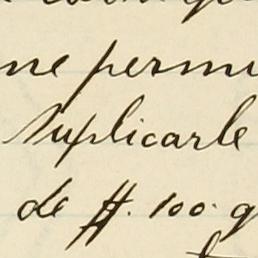 me permi
suplicarle
de $. 100. g